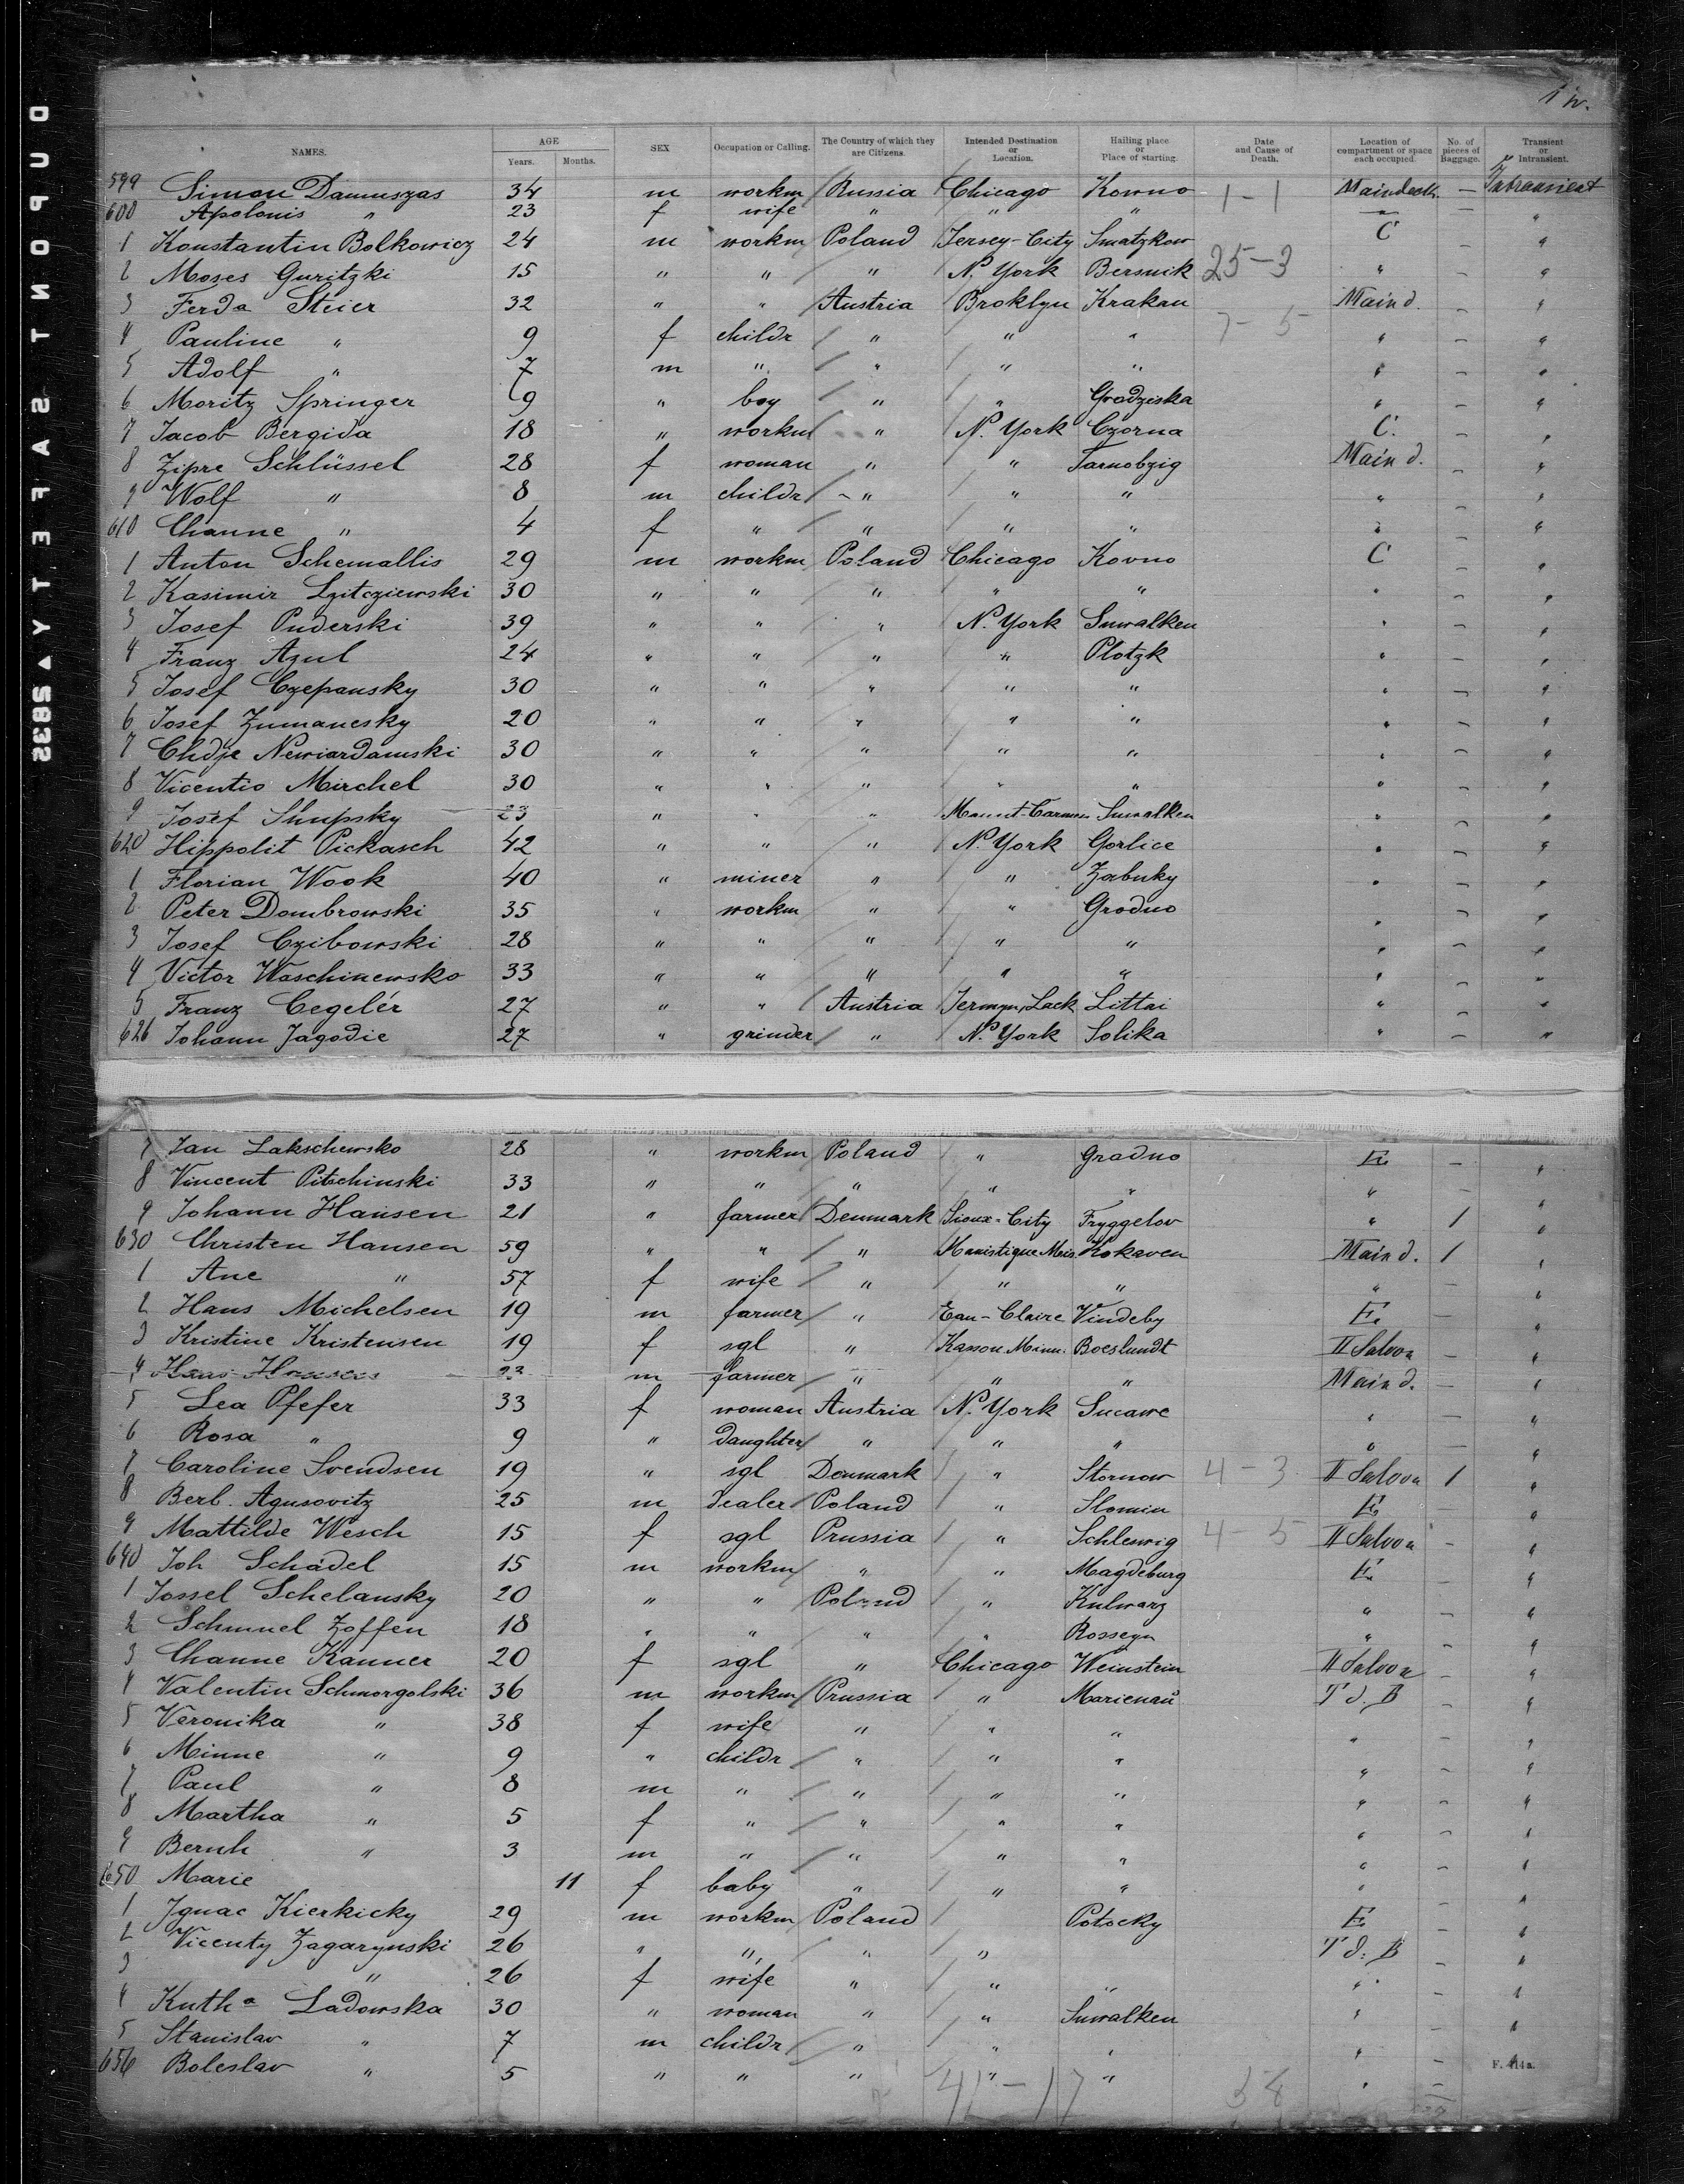 DUPONT SAFETY ▲ S83S
1 w.
NAMES. AGE Years. Months. SEX Occupation or Calling. The Country of which they are Citizens. Intended Destination or Location. Hailing place or Place of starting. Date and Cause of Death. Location of compartment or space each occupied. No. of pieces of Baggage. Transient or Intransient.
599 Simon Damuszas 34 m workm Russia Chicago Kowno 1-1 Maindeck — Intransient
600 Apolonis " 23 f wife " " " — — "
1 Konstantin Bolkowicz 24 m workm Poland Jersey-City Smatzkow C — "
2 Moses Guritzki 15 " " " N. York Bersnik 25-3 " — "
3 Ferda Steier 32 " " Austria Broklyn Krakau Main d. — "
4 Pauline " 9 f childr " " " 7-5 " — "
5 Adolf " 7 m " " " " " — "
6 Moritz Springer 9 " boy " " Grodziska " — "
7 Jacob Bergida 18 " workm " N. York Czorna C. — "
8 Zipre Schlüssel 28 f woman " " Tarnobzig Main d. — "
9 Wolf " 8 m childr " " " " — "
610 Channe " 4 f " " " " " — "
1 Anton Schemallis 29 m workm Poland Chicago Kovno C — "
2 Kasimir Lzitcziewski 30 " " " " " " — "
3 Josef Puderski 39 " " " N. York Suwalken " — "
4 Franz Azul 24 " " " " Plotzk " — "
5 Josef Czepansky 30 " " " " " " — "
6 Josef Zumanesky 20 " " " " " " — "
7 Chdje Newiardamski 30 " " " " " " — "
8 Vicentio Mirchel 30 " " " " " " — "
9 Josef Shupsky 23 " " " Mount-Carmen Suwalken " — "
620 Hippolit Pickasch 42 " " " N. York Gorlice " — "
1 Florian Wook 40 " miner " " Zabuky " — "
2 Peter Dombrowski 35 " workm " " Grodno " — "
3 Josef Czibowski 28 " " " " " " — "
4 Victor Waschinewsko 33 " " " " " " — "
5 Franz Cegelér 27 " " Austria Jermyn, Lack Littai " — "
626 Johann Jagodic 27 " grinder " N. York Solika " — "
7 Jan Lakschewsko 28 " workm Poland " Gradno E. — "
8 Vincent Pitschinski 33 " " " " " " — "
9 Johann Hansen 21 " farmer Denmark Sioux-City Fryggelov " 1 "
630 Christen Hansen 59 " " " Manistique Kokaven Main d. 1 "
1 Ane " 57 f wife " " " " — "
2 Hans Michelsen 19 m farmer " Eau-Claire Vindeby E. — "
3 Kristine Kristensen 19 f sgl " Kasson Minn. Boeslundt II Saloon — "
4 Hans Hansen 23 m farmer " " " Main d. — "
5 Lea Pfefer 33 f woman Austria N. York Sucawe " — "
6 Rosa " 9 " daughter " " " " — "
7 Caroline Svendsen 19 " sgl Denmark " Stornow 4-3 II Saloon 1 "
8 Berl. Agusovitz 25 m dealer Poland " Slomin E. — "
9 Mattilde Wesch 15 f sgl Prussia " Schleswig 4-5 II Saloon — "
640 Joh Schädel 15 m workm " " Magdeburg E. — "
1 Jossel Schelansky 20 " " Poland " Kulwarz " — "
2 Schmuel Zoffen 18 " " " " Rosseyn " — "
3 Channe Kanner 20 f sgl " Chicago Weinstein II Saloon — "
4 Valentin Schmorgolski 36 m workm Prussia " Marienau T d. B — "
5 Veronika " 38 f wife " " " " — "
6 Minne " 9 " childr " " " " — "
7 Paul " 8 m " " " " " — "
8 Martha " 5 f " " " " " — "
9 Bernh " 3 m " " " " " — "
650 Marie 11 f baby " " " " — "
1 Ignac Kierkicky 29 m workm Poland Potocky E. — "
2 Vicenty Zagarynski 26 " " " " T d. B — "
3 " 26 f wife " " " " — "
4 Kutha Ladowska 30 " woman " " Suwalken " — "
5 Stanislav " 7 m childr " " " " — "
656 Boleslav " 5 " " " " " " — "
41-17
F. 414a.